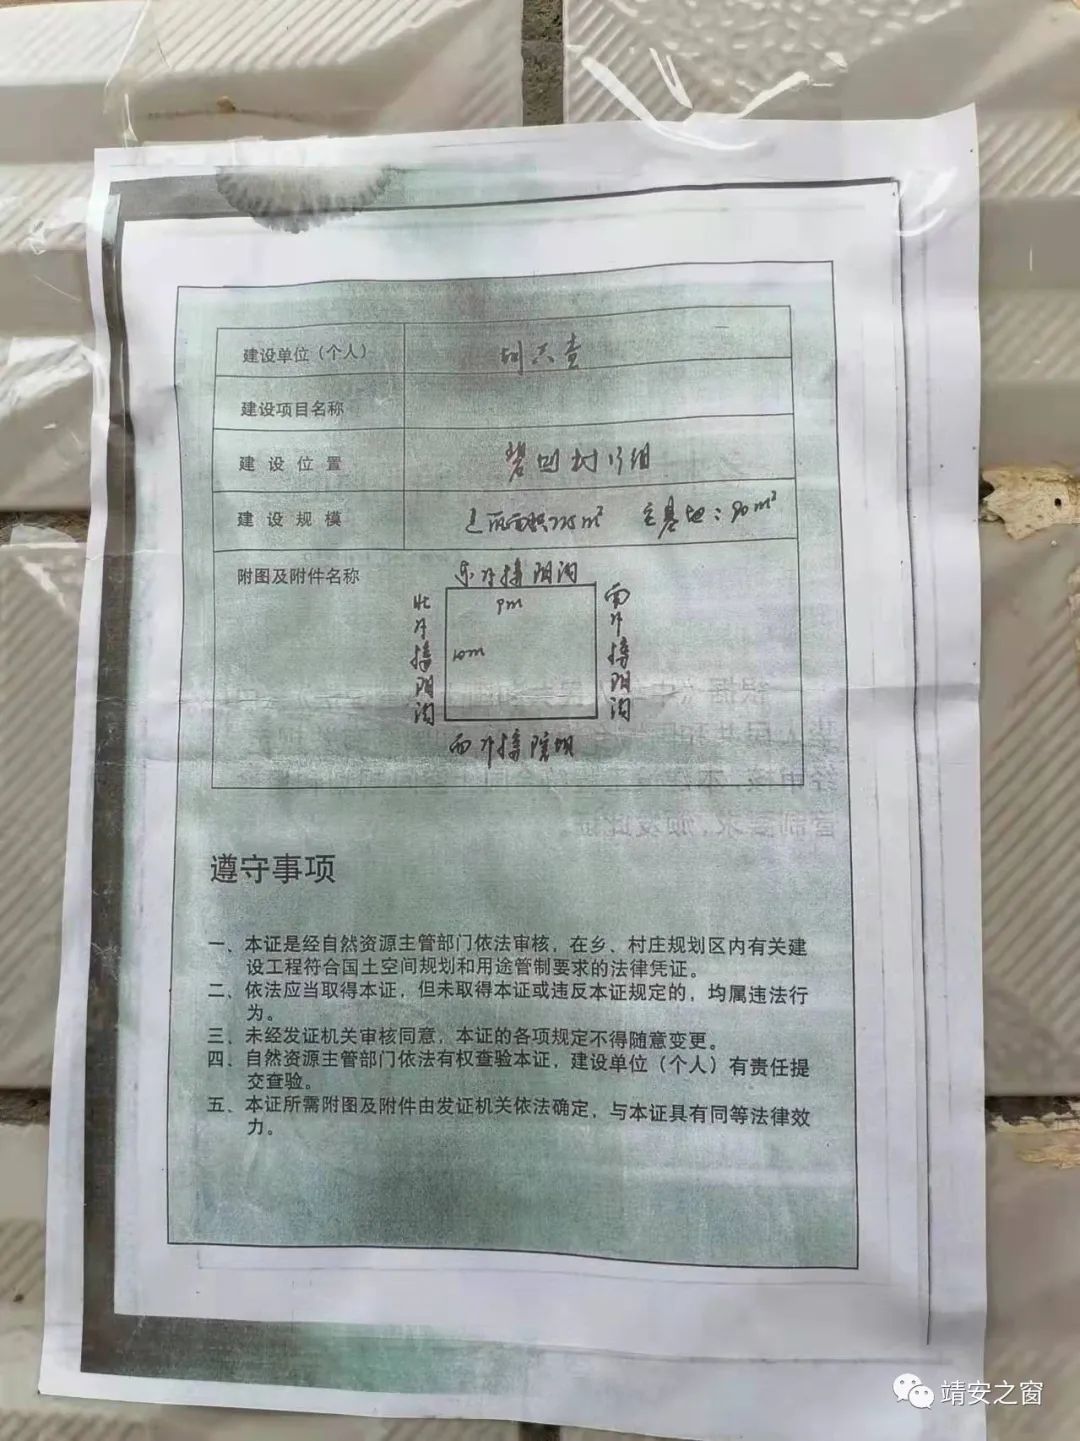 建设单位（个人）
建设项目名称
建设位置 碧 村 组
建设规模 建筑面积225m² 主基地：90m²
附图及附件名称
东 接阴沟
9m
10m
北 接阴沟
南 接阴沟
西 接院坝
遵守事项
一、本证是经自然资源主管部门依法审核，在乡、村庄规划区内有关建
设工程符合国土空间规划和用途管制要求的法律凭证。
二、依法应当取得本证，但未取得本证或违反本证规定的，均属违法行
为。
三、未经发证机关审核同意，本证的各项规定不得随意变更。
四、自然资源主管部门依法有权查验本证，建设单位（个人）有责任提
交查验。
五、本证所需附图及附件由发证机关依法确定，与本证具有同等法律效
力。
靖安之窗